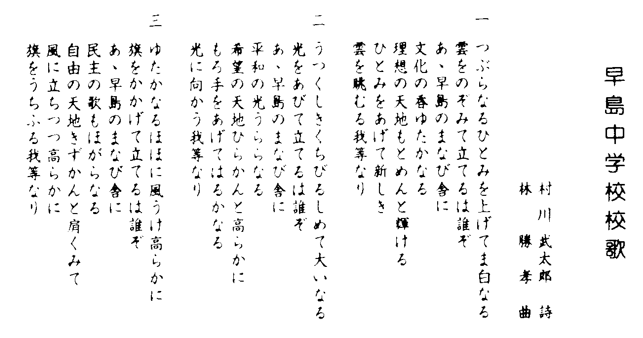 早島中学校校歌
村川武太郎 詩
林 勝孝 曲
一 つぶらなるひとみを上げてま白なる
雲をのぞみて立てるは誰ぞ
あゝ早島のまなび舎に
文化の春ゆたかなる
理想の天地もとめんと輝ける
ひとみをあげて新しき
雲を眺むる我等なり
二 うつくしきくちびるしめて大いなる
光をあびて立てるは誰ぞ
あゝ早島のまなび舎に
平和の光うららなる
希望の天地ひらかんと高らかに
もろ手をあげてはるかなる
光に向かう我等なり
三 ゆたかなるほほに風うけ高らかに
旗をかかげて立てるは誰ぞ
あゝ早島のまなび舎に
民主の歌もほがらなる
自由の天地きずかんと肩くみて
風に立ちつつ高らかに
旗をうちふる我等なり